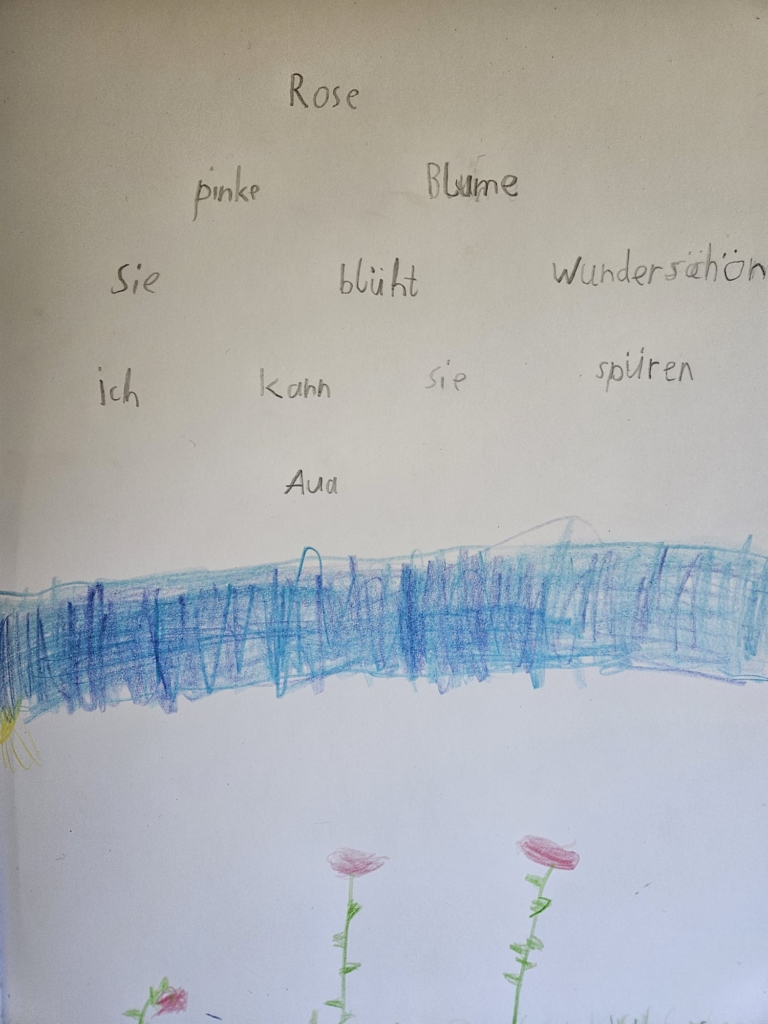 Rose
pinke Blume
Sie blüht Wundersähön
ich kann sie spüren
Aua